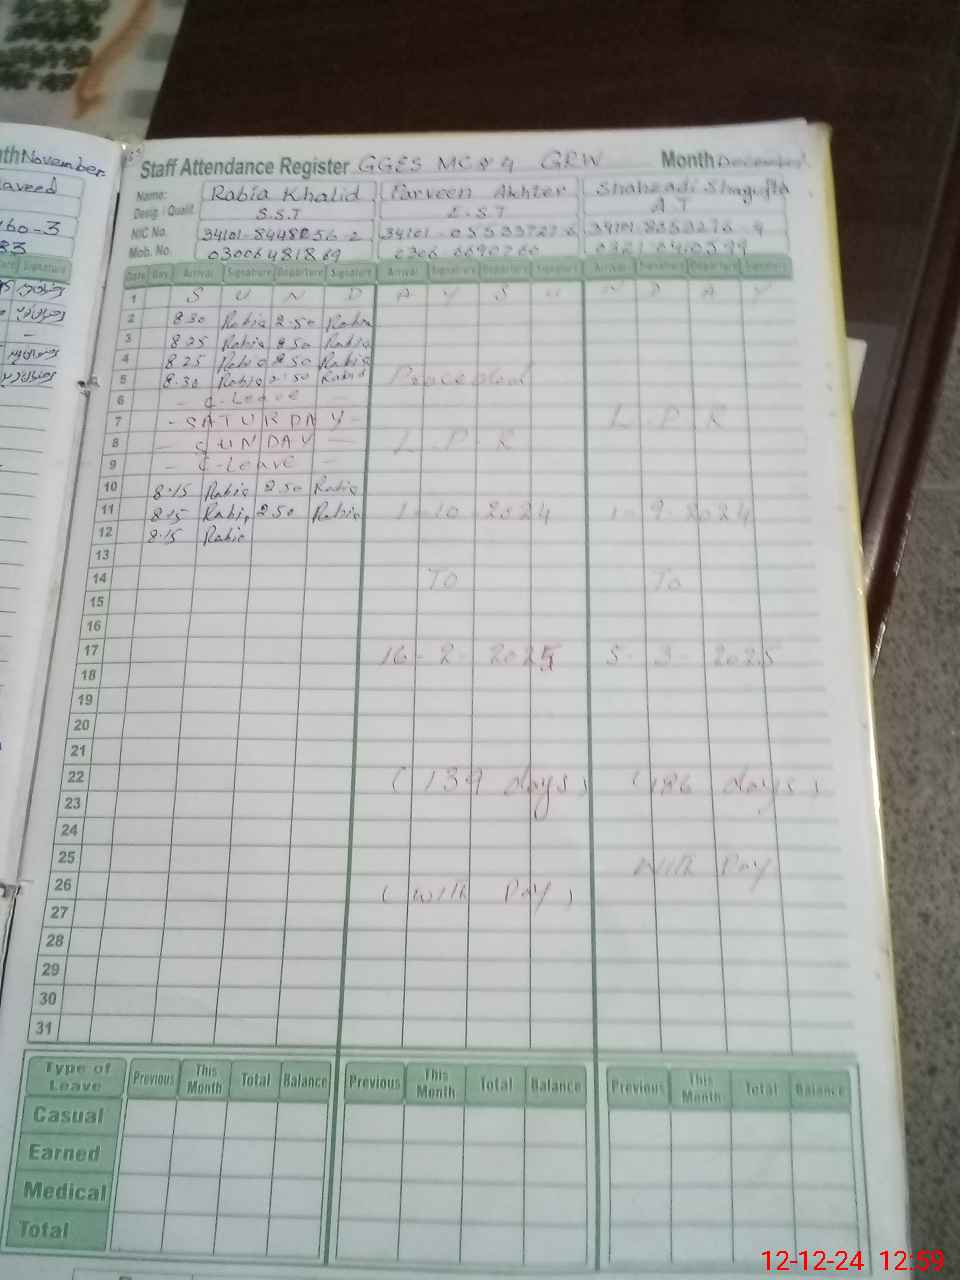 November
Staff Attendance Register GGES MC 4 GRW Month December
Name: Rabia Khalid Parveen Akhter Shahzadi Shagufta
Desig. / Qualif. S.S.T E.S.T A.T
NIC No.
Mob. No.
Date Day Arrival Signature Departure Signature Arrival Signature Departure Signature Arrival Signature Departure Signature
1 S U N D A Y S U N D A Y
2 8.30 Rabia 2.50 Rabia
3 8.25 Rabia 2.50 Rabia
4 8.25 Rabia 2.50 Rabia
5 8.30 Rabia 2.50 Rabia Proceeded
6 - C-Leave -
7 - SATURDAY - L P R
8 - SUNDAY - L P R
9 - C-Leave -
10 8.15 Rabia 2.50 Rabia
11 8.15 Rabia 2.50 Rabia 1-10-2024 1-9-2024
12 8.15 Rabia
13
14 TO To
15
16
17 16-2-2025 5-3-2025
18
19
20
21
22 (139 days) (186 days)
23
24
25 With Pay
26 (With Pay)
27
28
29
30
31
Type of Leave Previous This Month Total Balance Previous This Month Total Balance Previous This Month Total Balance
Casual
Earned
Medical
Total
12-12-24 12:59